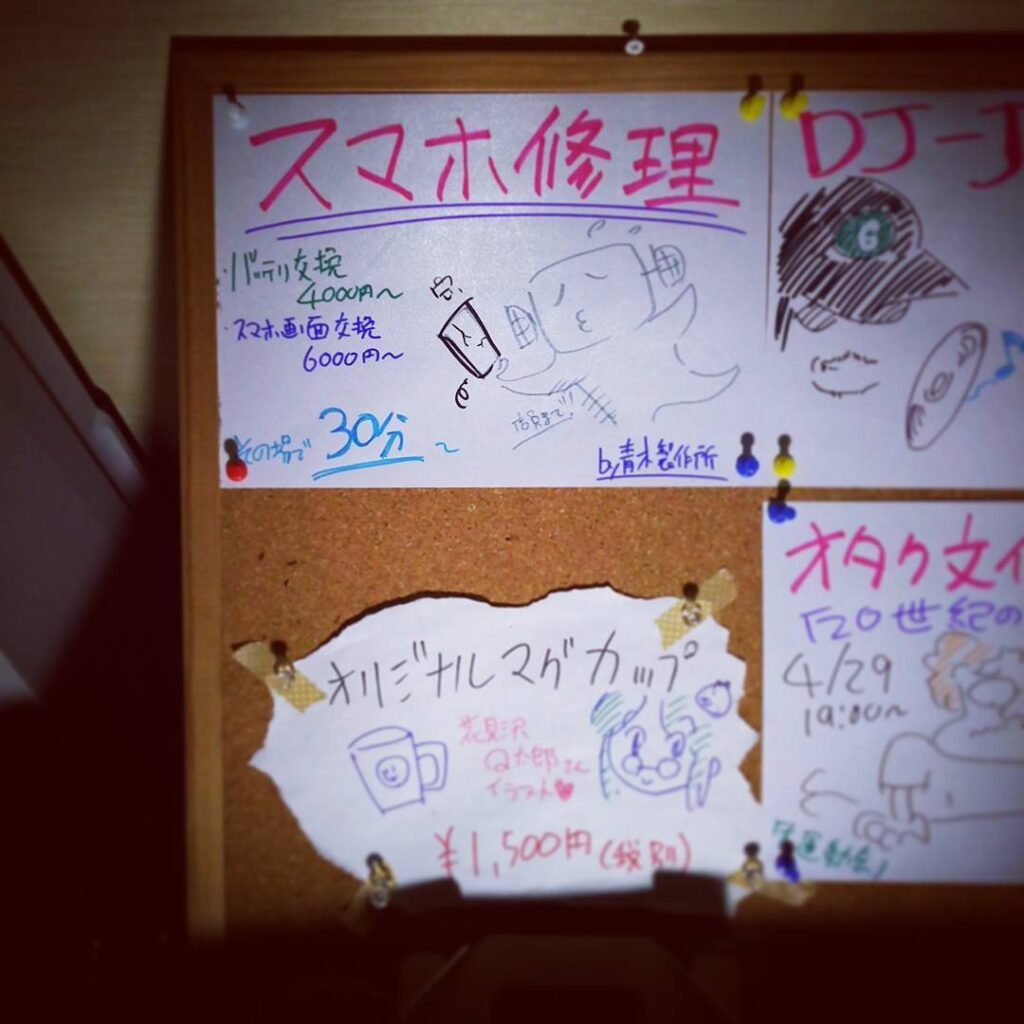 スマホ修理
・バッテリ交換
4000円〜
・スマホ画面交換
6000円〜
その場で 30分〜
店員まで!
b,青木製作所
DJ-J
G
オタク文
20世紀の
4/29
19:00〜
大運動会!
オリジナルマグカップ
花見沢
Q太郎さん
イラスト
¥1,500円(税別)